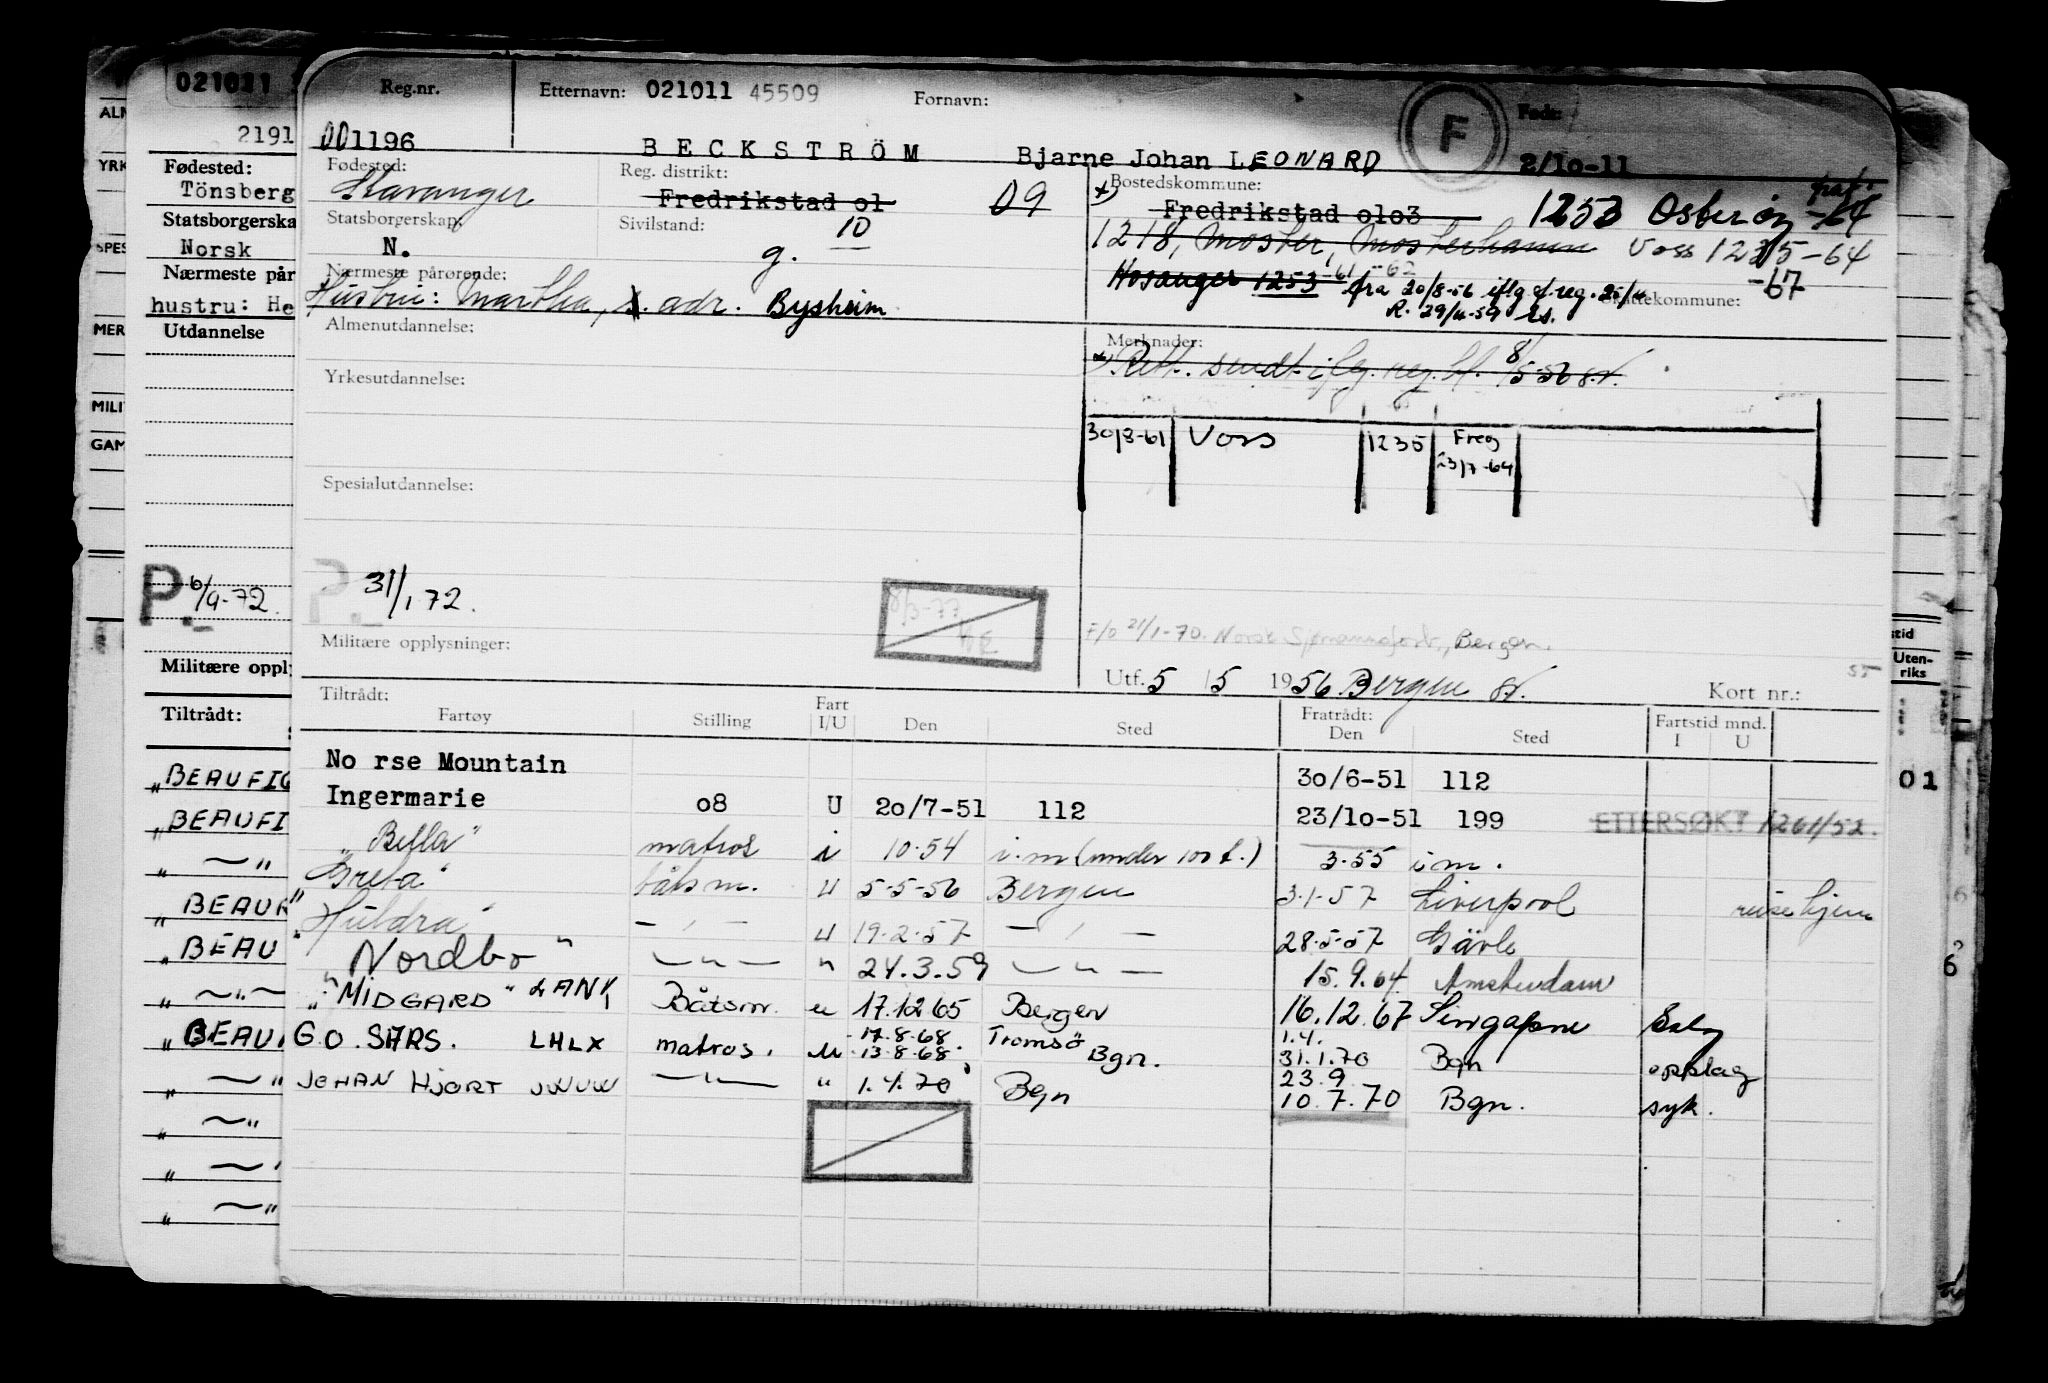 021011
2191
Fødested:
Tönsberg
Statsborgerska
Norsk
Nærmeste pår
hustru: He
Utdannelse
P. 6/9-72.
Militære oppl
Tiltrådt:
"BEAUFIG
"BEAUFI
" —"
"BEAU
"BEAU
" —"—
"BEAU
" —"
" —"
" —"
" —"
ALM
YRK
SPES
MER
MILI
GAM
Reg.nr. Etternavn: 021011 45509 Fornavn: Født:
001196 BECKSTRÖM Bjarne Johan LEONARD F 2/10-11
Fødested: Reg. distrikt: Bostedskommune:
Stavanger Fredrikstad 01 09 x) Fredrikstad 0103 1253 Osterøy -64
Statsborgerskap: Sivilstand: 10
N. g. 1218, Moster, Mosterhamn Voss 1235-64
Nærmeste pårørende: Hosanger 1253 -61 -62 fra 20/8-56 iflg f.reg. 25/4 Skattekommune: -67
Hustru: Martha, s. adr. Bysheim R. 29/4-59
Almenutdannelse: Merknader:
x) Rett. sendt iflg. reg. bf. 8/5-56
Yrkesutdannelse:
30/8-61 Voss 1235 Freg 23/7-64
Spesialutdannelse:
P. 31/1.72. 8/3-77
Militære opplysninger: F/o 21/1-70. Norsk Sjømannsforb., Bergen.
Utf. 5 / 5 1956 Bergen Kort nr.: 55
Tiltrådt: Fratrådt: Fartstid mnd.
Fartøy Stilling Fart I/U Den Sted Den Sted I U
No rse Mountain 30/6-51 112
Ingermarie 08 U 20/7-51 112 23/10-51 199 ETTERSØKT 1201/52.
"Bella" matros i 10.54 i.m (under 100 t.) 3.55 i m.
"Greta" båtsm. u 5-5-56 Bergen 3.1-57 Liverpool reise hjem
"Huldra" — " — u 19.2.57 — " — 28.5-57 Gävle
"Nordbo" — " — " 24.3.59 — " — 15.9.64 Amsterdam
"MIDGARD" LANK Båtsm. u 17.12 65 Bergen 16.12.67 Singapore Salg
G.O. SARS. LHLX matros. u 17.8.68. 13.8.68. Tromsö Bgn. 1.4. 31.1.70 Bgn opplag
JOHAN HJORT JWUW — " — " 1.4.70 Bgn 23.9 10.7.70 Bgn. syk.
stid
Uten-
riks
01
6